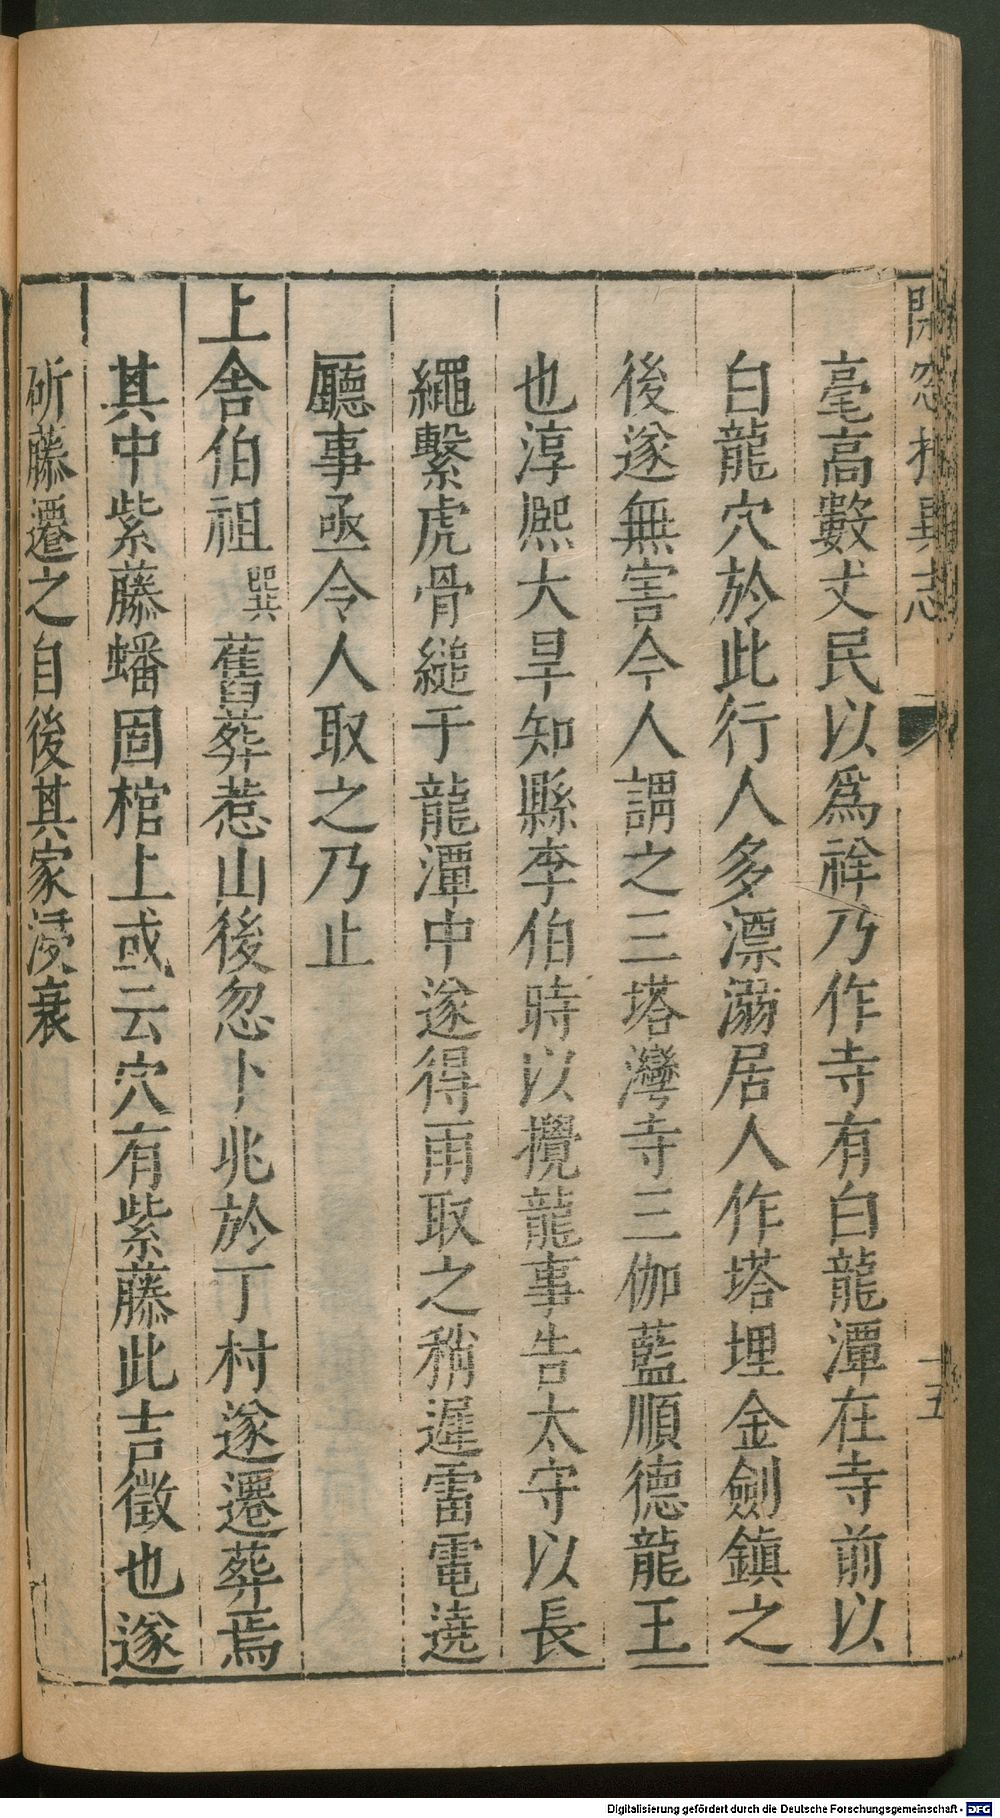 毫高數丈民以爲祥乃作寺有白龍潭在寺前以
白龍穴於此行人多漂溺居人作塔埋金劍鎮之
後遂無害今人謂之三塔灣寺三伽藍順德龍王
也淳熙大旱知縣李伯時以攪龍事告太守以長
繩繫虎骨縋于龍潭中遂得雨取之稍遲雷電遶
廳事亟令人取之乃止
上舍伯祖 舊葬惹山後忽卜兆於丁村遂遷葬焉
其中紫藤蟠固棺上或云穴有紫藤此吉徵也遂
斫藤遷之自後其家浸衰
五
Digitalisierung gefördert durch die Deutsche Forschungsgemeinschaft - DFG